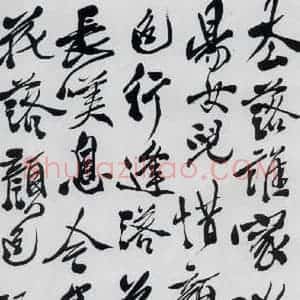 去落誰家
陽女兒惜顏
色行逢落花
長嘆息今年
花落顏色